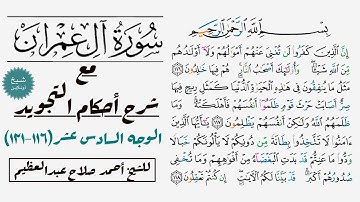 بِسْمِ اللَّهِ الرَّحْمَٰنِ الرَّحِيمِ
إِنَّ الَّذِينَ كَفَرُوا لَن تُغْنِيَ عَنْهُمْ أَمْوَالُهُمْ وَلَا أَوْلَادُهُم
مِّنَ اللَّهِ شَيْئًا وَأُولَٰئِكَ أَصْحَابُ النَّارِ هُمْ فِيهَا خَالِدُونَ ١١٦
مَثَلُ مَا يُنفِقُونَ فِي هَٰذِهِ الْحَيَاةِ الدُّنْيَا كَمَثَلِ رِيحٍ فِيهَا
صِرٌّ أَصَابَتْ حَرْثَ قَوْمٍ ظَلَمُوا أَنفُسَهُمْ فَأَهْلَكَتْهُ وَمَا
ظَلَمَهُمُ اللَّهُ وَلَٰكِنْ أَنفُسَهُمْ يَظْلِمُونَ ١١٧ يَا أَيُّهَا الَّذِينَ
آمَنُوا لَا تَتَّخِذُوا بِطَانَةً مِّن دُونِكُمْ لَا يَأْلُونَكُمْ خَبَالًا
وَدُّوا مَا عَنِتُّمْ قَدْ بَدَتِ الْبَغْضَاءُ مِنْ أَفْوَاهِهِمْ وَمَا تُخْفِي
صُدُورُهُمْ أَكْبَرُ قَدْ بَيَّنَّا لَكُمُ الْآيَاتِ إِن كُنتُمْ تَعْقِلُونَ ١١٨
سورة آل عمران
مع
شيخ
اونلاين
شرح أحكام التجويد
الوجه السادس عشر (١١٦-١٢١)
للشيخ أحمد صلاح عبدالعظيم